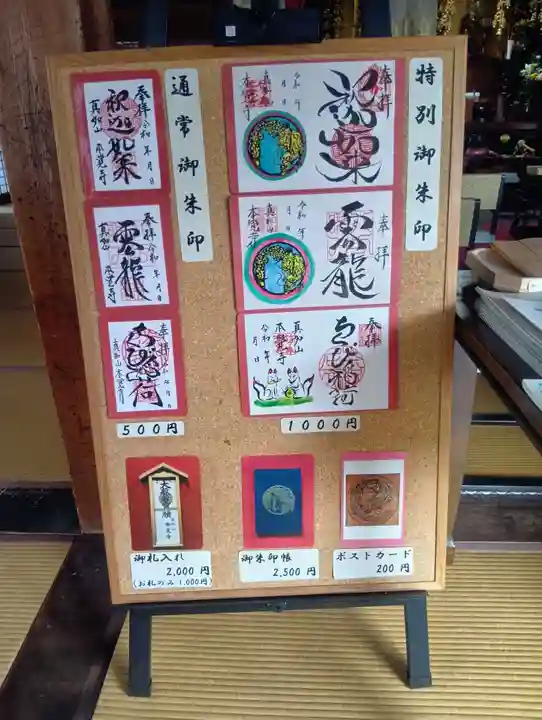 特別御朱印
奉拝
釈迦如来
真如山
本覚寺
令和 年
月 日
奉拝
雲龍
令和 年
月 日
真如山
本覚寺
奉拝
ちび稲荷
真如山
本覚寺
令和 年
月 日
1000円
通常御朱印
奉拝
令和 年 月 日
釈迦如来
真如山 本覚寺
奉拝
令和 年 月 日
雲龍
真如山 本覚寺
奉拝
令和 年 月 日
ちび稲荷
真如山 本覚寺
500円
御札入れ
2,000 円
(お札のみ 1,000円)
御朱印帳
2,500 円
ポストカード
200 円